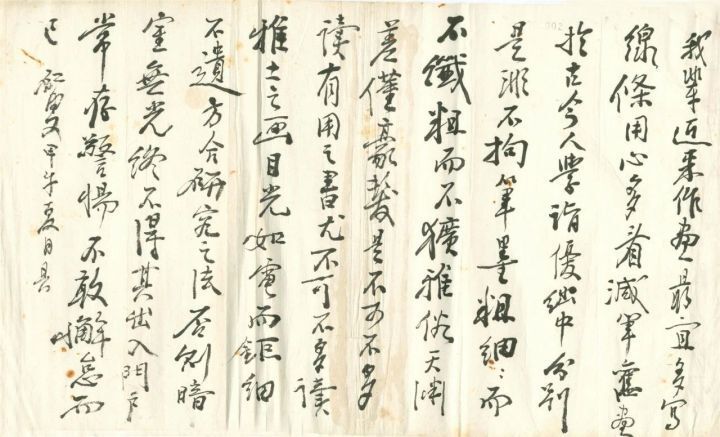 我輩近來作畫最宜多寫
線條用心多看減筆舊畫
於古今人學詣優絀中分別
是非不拘筆墨粗細細而
不纖粗而不獷雅俗天淵
差僅毫髮是不可不多
讀有用之書尤不可不多讀
雅士之画目光如電而鉅細
不遺方合研究之法否則暗
室無光終不得其出入門戶
常存警惕不敢懈怠而
已 叟甲午夏日